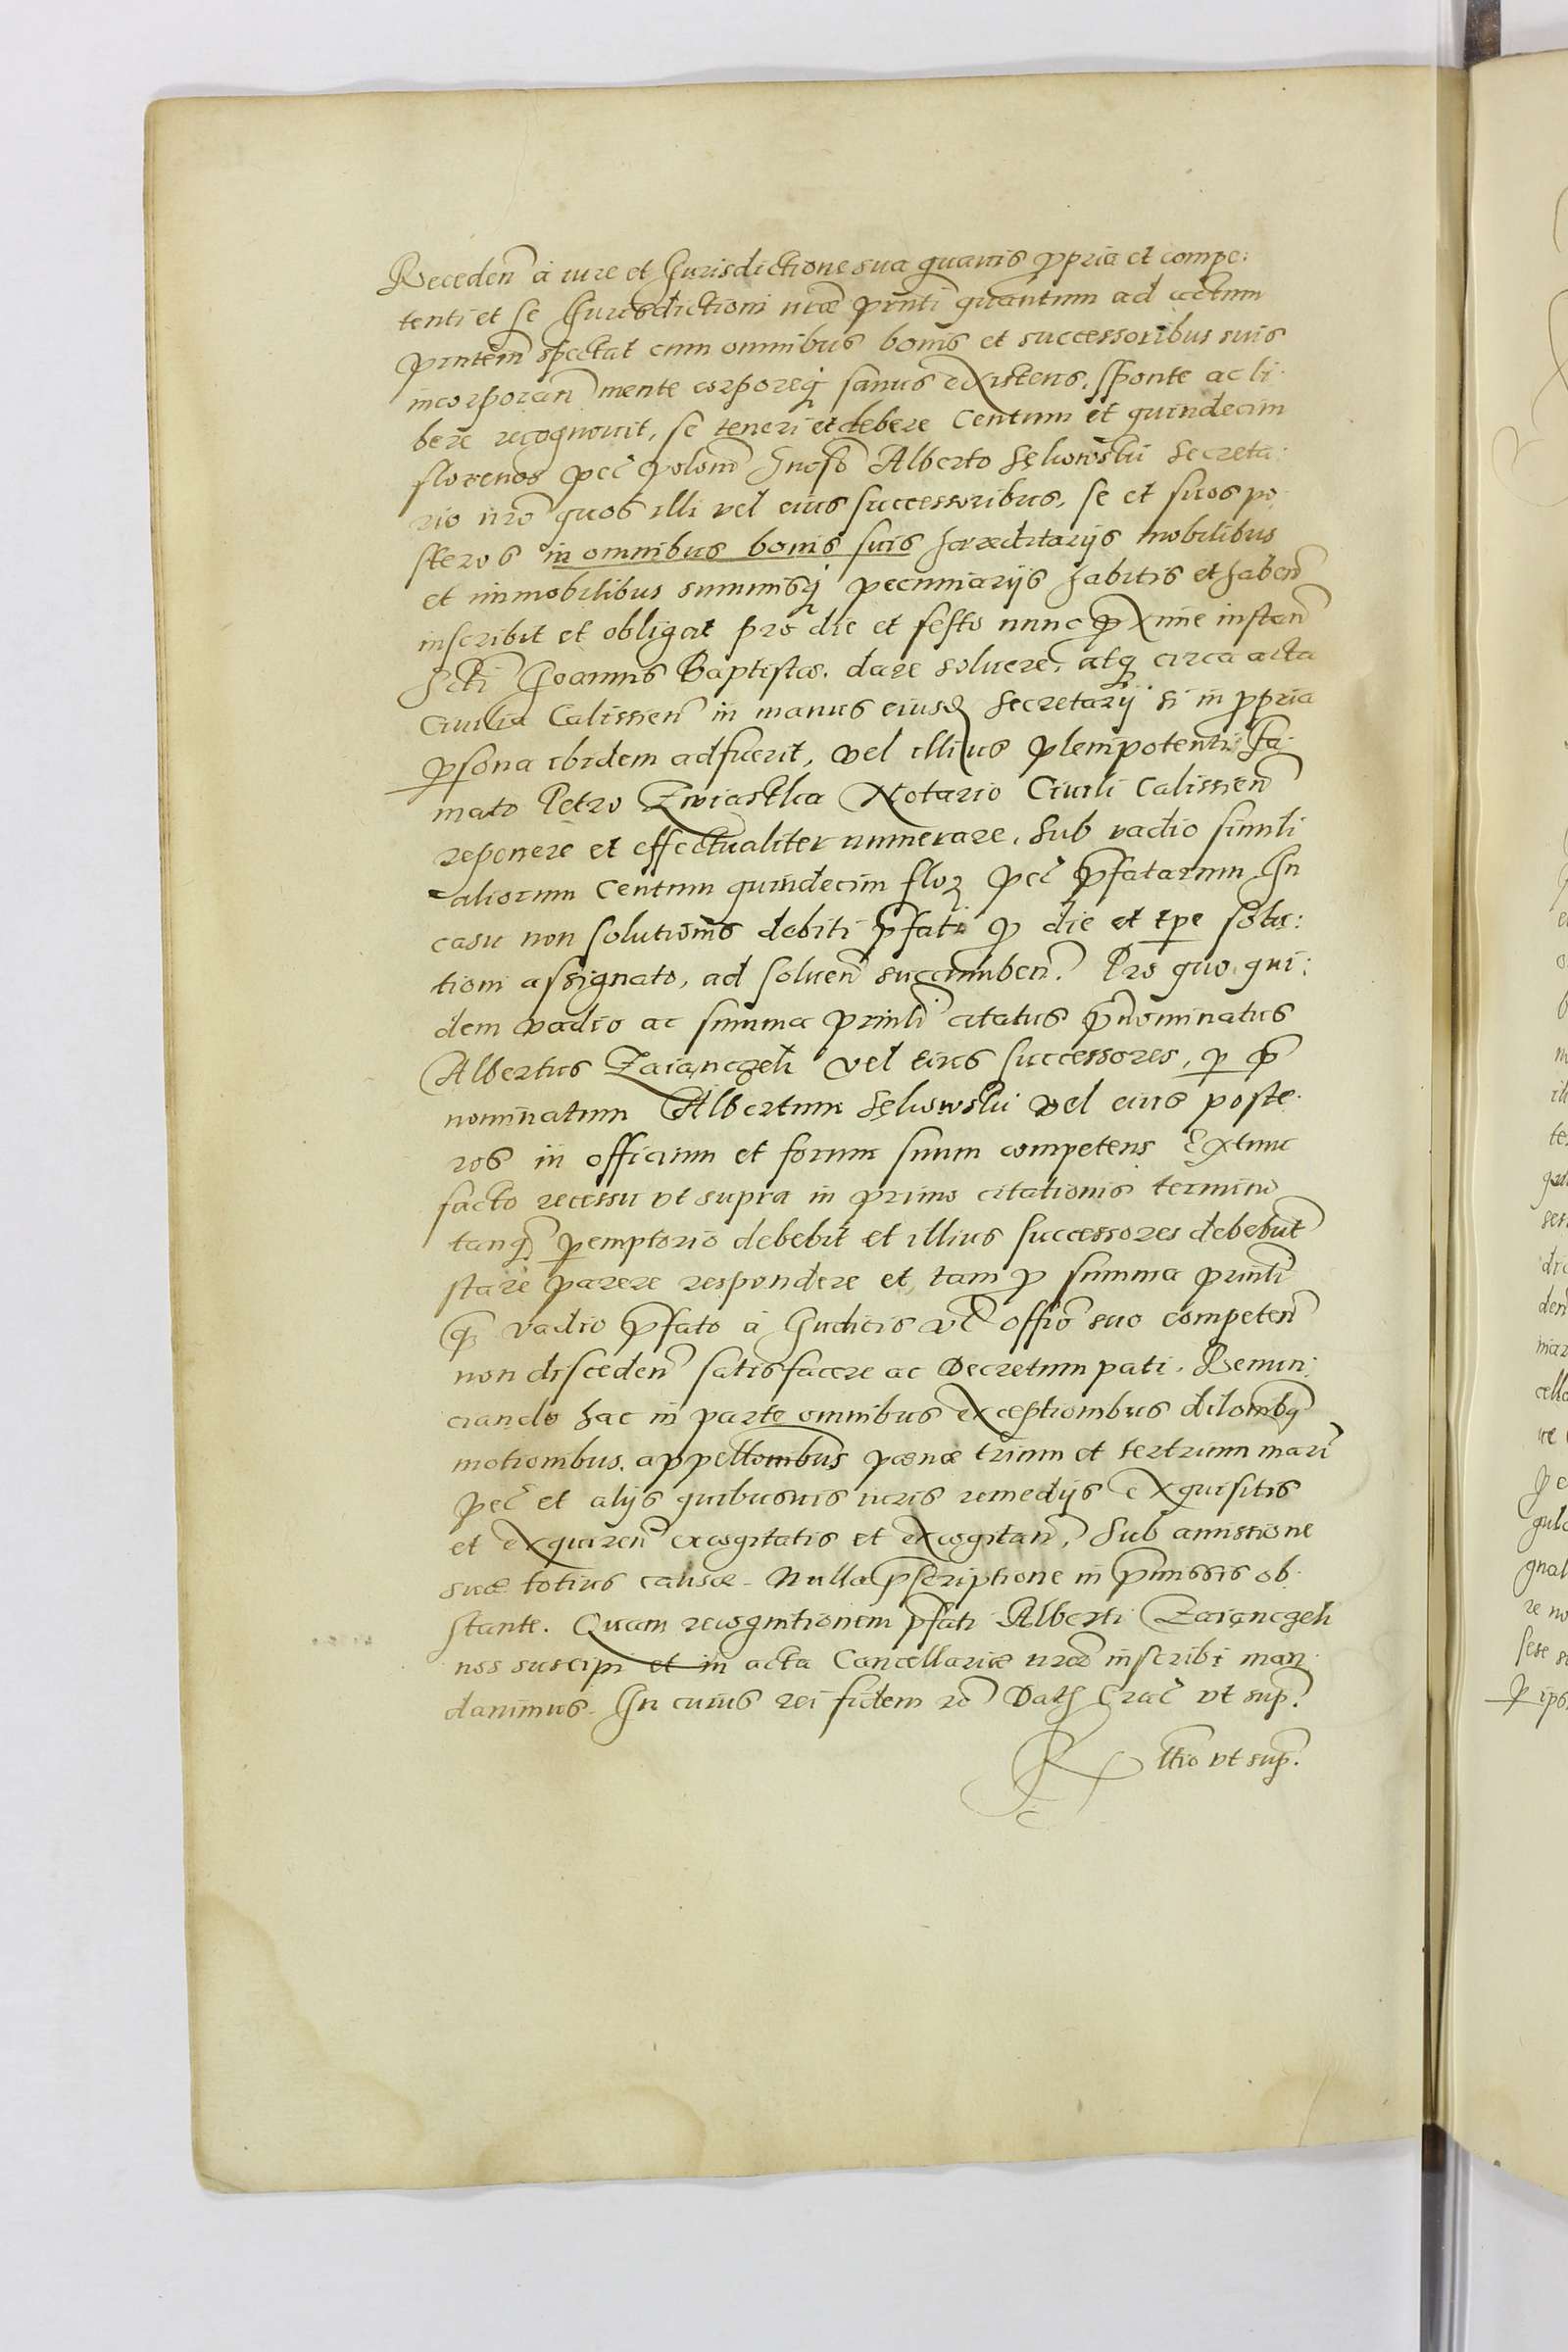 Receden̄ à iure et Iurisdictione sua quauis ꝓpria et compe:
tenti et se Iurisdictioni nr̃æ pn̄ti quantum ad actum
pn̄tem spectat cum omnibus bonis et successoribus suis
incorporan̄ mente corporeq́ sanus existens, sponte ac li:
bere recognouit, se teneri et debere Centum et quindecim
florenos pec̄ polon̄ Gn̄oso Alberto Sękowski Secreta:
rio nr̃o quos illi vel eius successoribus, se et suos po:
steros in omnibus bonis suis hæreditarijs mobilibus
et immobilibus summisq́ pecuniarijs habitis et haben̄
inscribit et obligat pro die et festo nunc ꝓxime instan̄
Scti Joannis Baptistæ. dare soluere, atq́ circa acta
Ciuilia Calissien̄ in manus eiusd̄ Secretarij si in ꝓpria
ꝑsona ibidem adfuerit, vel illius plenipotenti Fa:
mato Petro Zwiastka Notario Ciuili Calissien̄
reponere et effectualiter numerare, Sub vadio simili
aliorum Centum quindecim flor̄ pec̄ p̄fatarum In
casu non solutionis debiti p̄fati ꝓ die et tp̄e solu:
tioni assignato, ad soluen̄ succumben̄. Pro quo qui:
dem vadio ac summa prin̄li citatus p̄nominatus
Albertus Zaiączek vel eius successores, ꝑ p̄
nominatum Albertum Sękowski vel eius poste:
ros in officium et forum suum competens Extunc
facto recessu vt supra in primo citationis termino
tanq̄ ꝑemptorio debebit et illius successores debebunt
stare parere respondere et tam ꝓ summa prin̄li
q̄ vadio p̄fato à Iudicio vel offīo suo competen̄
non disceden̄ satisfacere ac Decretum pati. Renun:
ciando hac in parte omnibus exceptionibus dilōnibq́
motionibus. appellōnibus pœnæ trium et tertrium marc̄
pec̄ et alijs quibusuis iuris remedijs exquisitis
et exquiren̄ excogitatis et excogitan̄, Sub amissione
suæ totius causæ. Nulla p̄scriptione in p̄missis ob:
stante. Quam recognitionem p̄fati Alberti Zaiączek
nos suscipi et in acta Cancellariæ nr̃æ inscribi man:
dauimus. In cuius rei fidem rc̄ Dat̄ Crac̄ vt sup̄.
Rel̄tio vt sup̄.